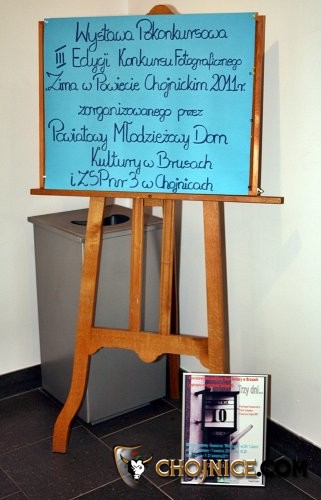 Wystawa Pokonkursowa
III Edycji Konkursu Fotograficznego
Zima w Powiecie Chojnickim 2011r.
zorganizowanego przez
Powiatowy Młodzieżowy Dom
Kultury w Brusach
i ZSP nr 3 w Chojnicach
Trzy dni...
10
CHOJNICE.COM